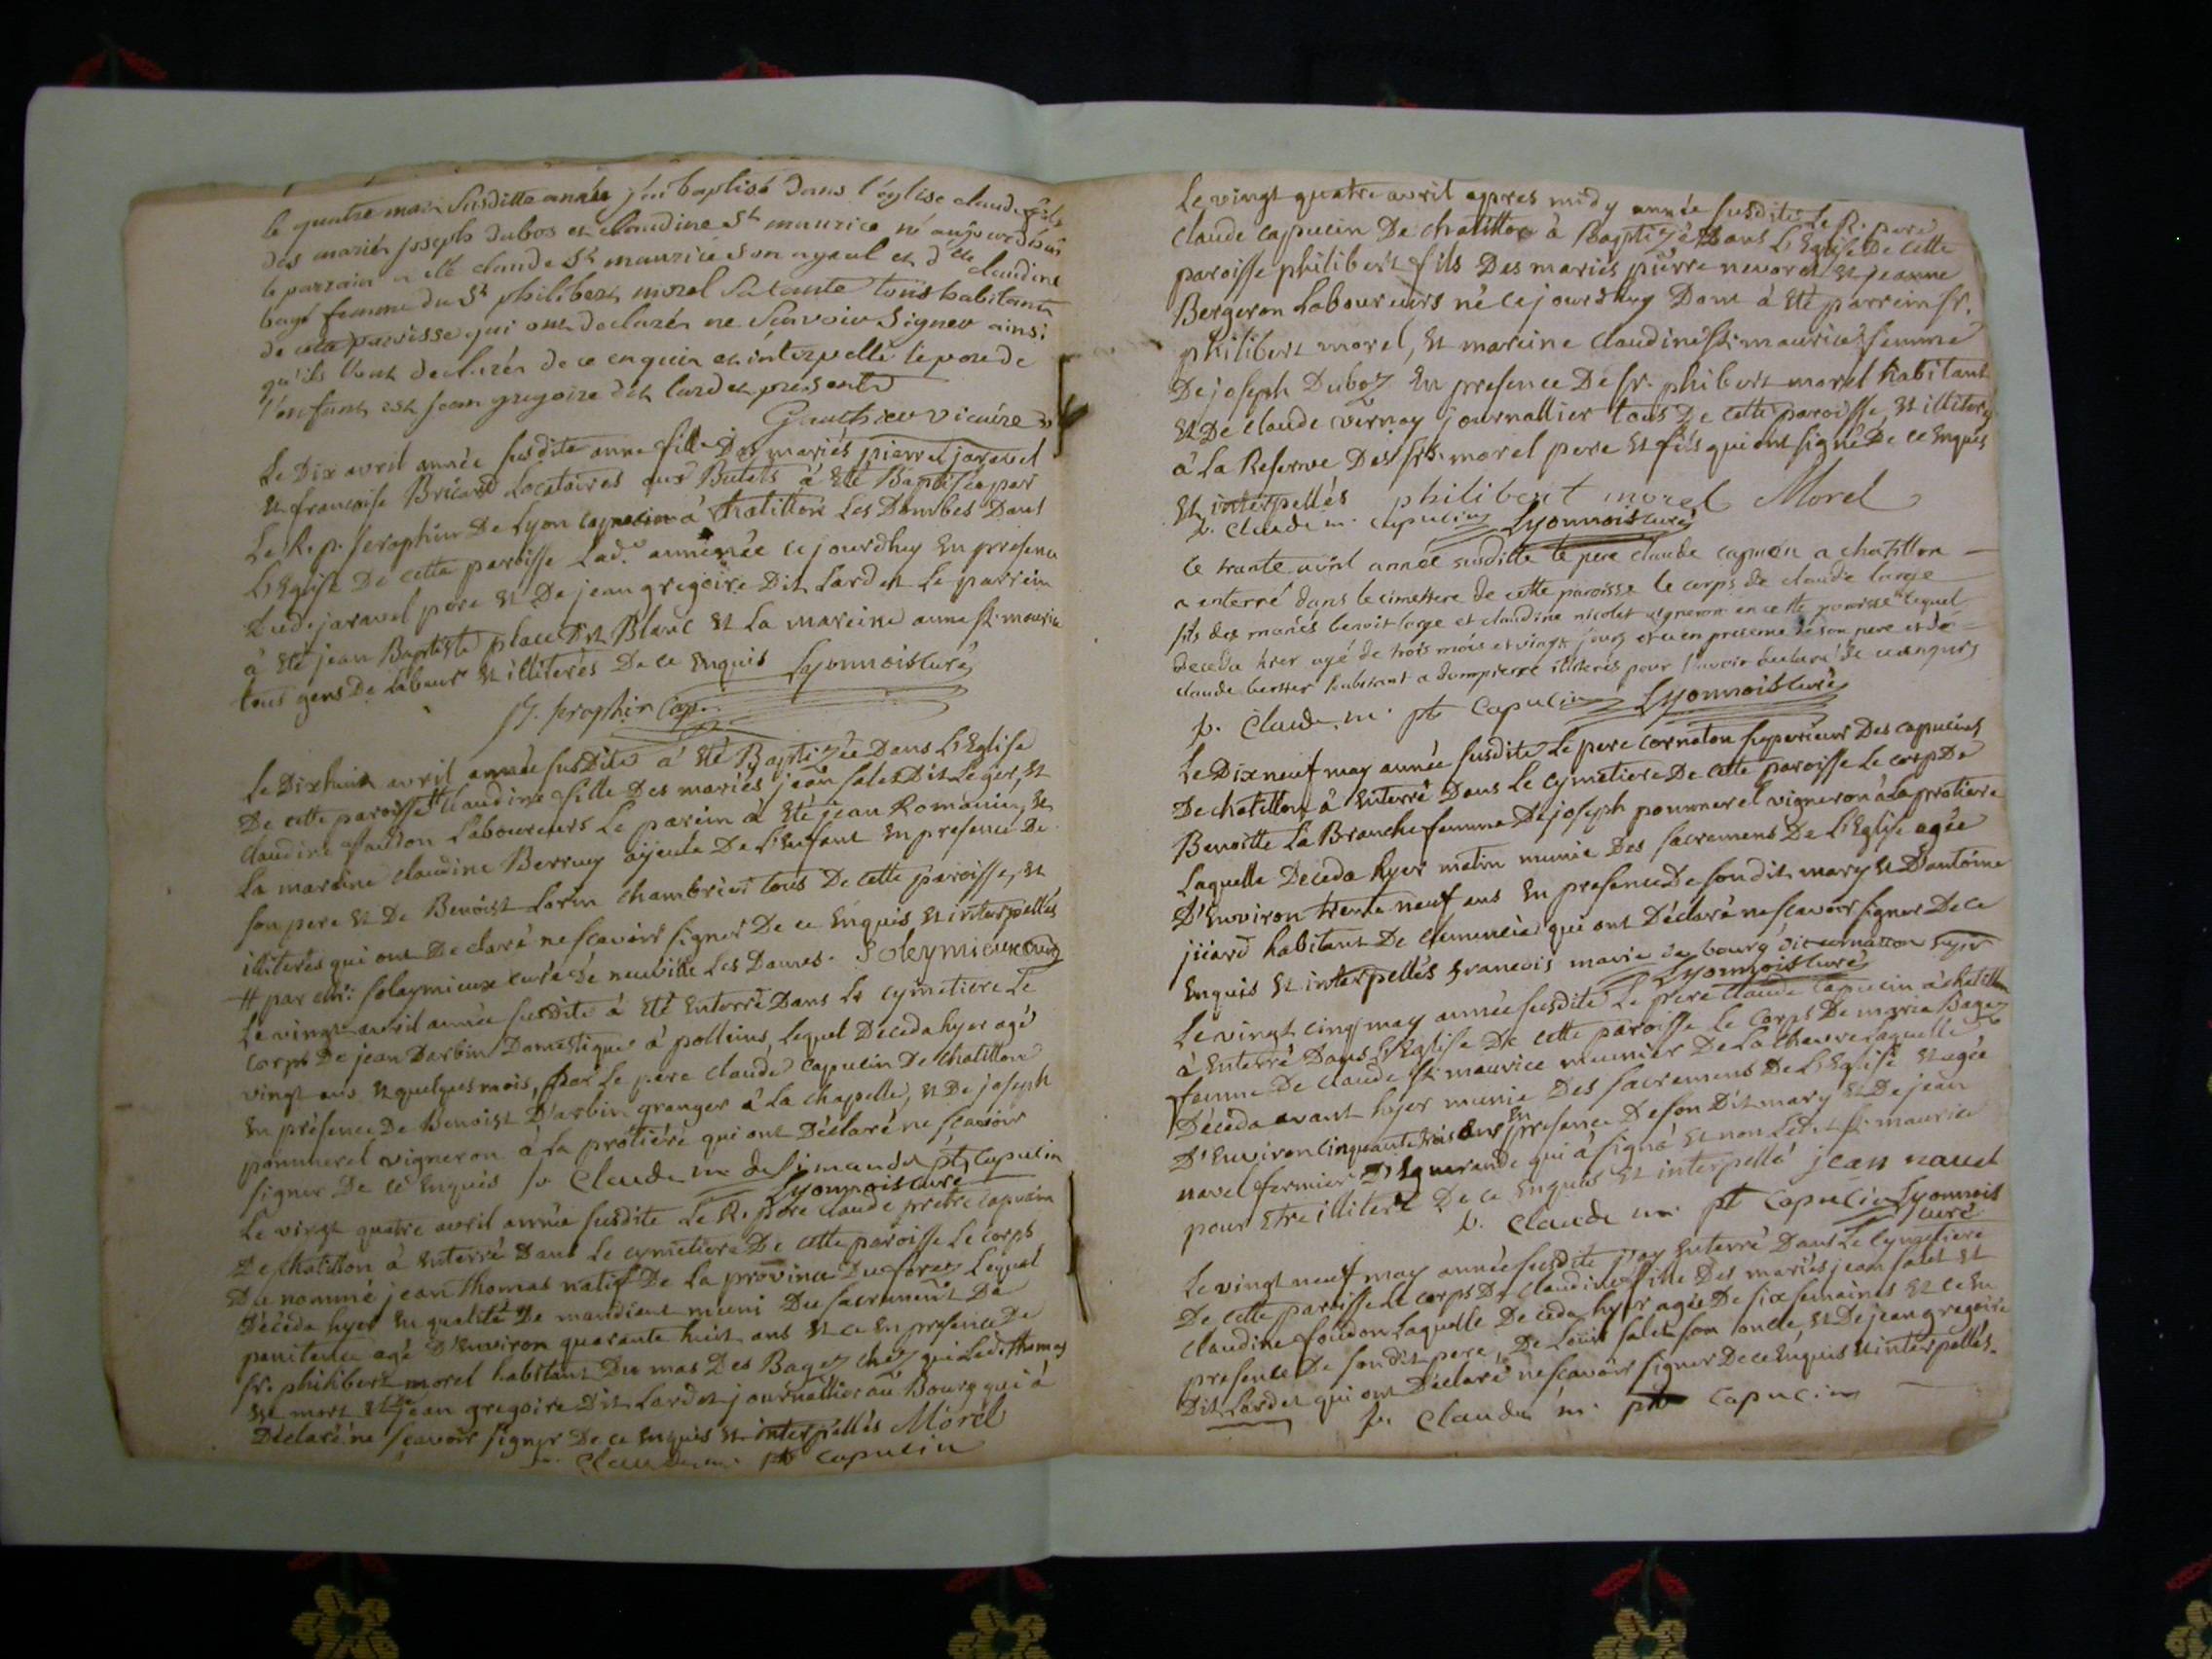 le quatre mars susditte année j'ai baptisé dans l'église claude fils
des mariés joseph dubos et claudine St maurice né aujourdhui
le parrain a été claude St maurice son ayeul et dlle claudine
bagé femme du Sr philibert morel sa tante tous habitants
de cette paroisse qui ont declarés ne scavoir signer ainsi
qu'ils l'ont declarés de ce enquis et interpellé le pere de
l'enfant est jean gregoire dit lardet présents
Gauthier vicaire
Le Dix avril année susdite anne fille Des mariés pierre jaravel
Et francoise Bricard Locataires aux Butets à été Baptisée par
Le R. p. seraphin De Lyon capucin à Chatillon Les Dombes Dans
L'Eglise De cette paroisse Lad. anne née cejourdhuy En presence
dud. jaravel pere Et De jean gregoire Dit Lardet Le parrein
à été jean Baptiste place dit Blanc Et La mareine anne st. maurice
tous gens De Labeur Et illiterés De ce Enquis Lyonnois curé
f. seraphin Cap.
Le Dixhuit avril année susdite à été Baptizée Dans L'Eglise
De cette paroisse # Claudine fille Des mariés jean salet Dit Leger, Et
claudine foudon Laboureurs Le parein à été jean Romanin, Et
La mareine claudine Berruy ayeule De L'Enfant En presence De
son pere Et De Benoist Lorin chambrier tous De cette paroisse, Et
illiterés qui ont Declaré ne scavoir signer De ce Enquis Et interpellés
# par mr. solaymieux curé de neuville Les Dames. Soleymieux curé
Le vingt avril année susdite à été Enterré Dans Le cymetiere Le
corps De jean Darbin Domestique à polleins, Lequel Deceda hyer agé
vingt ans Et quelques mois, par Le pere claude capucin De chatillon
En présence De Benoist D'arbin granger à La chapelle, Et De joseph
pommerel vigneron à La protiére qui ont Déclaré ne scavoir
signer De ce Enquis f. Claude m. de simandre pt. capucin
Lyonnois curé
Le vingt quatre avril année susdite Le R. pere claude prêtre capucin
De chatillon à Enterré Dans Le cymetiere De cette paroisse Le corps
Du nommé jean thomas natif De La province Du forez Lequel
Déceda hyer En qualité De mandiant muni Du sacrement De
penitence agé D'Environ quarante huit ans Et ce En presence De
sr. philibert morel habitant Du mas Des Bagez chez qui Ledit thomas
Est mort Et de jean gregoire Dit Lardet journallier au Bourg qui à
Déclaré ne scavoir signer De ce Enquis Et interpellés Morel
f. Claude m. pt capucin
Le vingt quatre avril apres midy année susdite Le R. pere
Claude capucin De chatillon à Baptizé Dans L'Eglise De cette
paroisse philibert fils Des mariés pierre nevoret Et jeanne
Bergeron Laboureurs né cejourdhuy Dont à été parrein sr.
philibert morel, Et mareine claudine st. maurice femme
De joseph Duboz En presence De sr. phibert morel habitant
Et De claude vernay journallier tous De cette paroisse, Et illiterés
à La Reserve Des srs. morel pere Et fils qui ont signé De ce Enquis
Et interpellés philibert morel Morel
f. Claude m. capucin Lyonnois curé
le trante avril année susditte le pere claude capucin a chatillon
a enterré dans le cimettere de cette paroisse le corps de claude large
fils des mariés benoit large et claudine nicolet vigneron en cette paroisse lequel
deceda hier agé de trois mois et vingt jours et ce en presence de son pere et de
claude berther habitant a dompierre illiterés pour l'avoir declaré de ce enquis
f. Claude m. pt capucin Lyonnois curé
Le Dixneuf may année susdite Le pere cornaton superieur Des capucins
De chatillon à Enterré Dans Le cymetiere De cette paroisse Le corp De
Benoitte La Branche femme De joseph pommerel vigneron à La protiere
Laquelle Deceda hyer matin munie Des sacremens De L'Eglise agée
D'Environ trente neuf ans En presence De son dit mary Et D'antoine
jiiard habitant De clemencia qui ont Déclaré ne scavoir signer De ce
Enquis Et interpellés francois marie de bourg dit cornatton supr
Lyonnois curé
Le vingt cinq may année susdite Le pere claude capucin à chatillon
à Enterré Dans L'Eglise De cette paroisse Le corps De marie Bagez
femme De claude st. maurice meunier De La Cheure Laquelle
Déceda avant hyer munie Des sacremens De L'Eglise Et agée
D'Environ cinquante trois ans En presence De son Dit mary Et De jean
navel fermier D'Eguerande qui à signé Et non Ledit st. maurice
pour Etre illiteré De ce Enquis Et interpellé jean navel
f. Claude m. pt capucin Lyonnois
curé
Le vingt neuf may année susdite j'ay Enterré Dans Le Cymetiere
De cette paroisse Le corps De claudine fille Des mariés jean salet Et
claudine foudon Laquelle Deceda hyer agée De six semaines Et ce En
presence De son dit pere, De Louis salet son oncle, Et De jean gregoire
Dit Lardet qui ont Déclaré ne scavoir signer De ce Enquis Et interpellés.
f. Claude m. ptr capucin